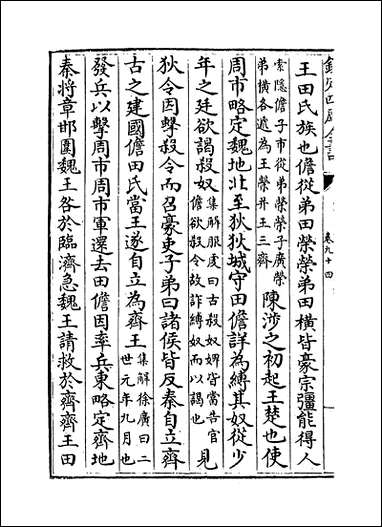 欽定四庫全書
卷九十四
王田氏族也儋從弟田榮榮弟田横皆豪宗彊能得人
索隱儋子市從弟榮榮子廣榮
弟横各遞為王榮并王三齊
陳涉之初起王楚也使
周市略定魏地北至狄狄城守田儋詳為縛其奴從少
年之廷欲謁殺奴
集解服虔曰古殺奴婢皆當告官
儋欲殺令故詐縛奴而以謁也
見
狄令因擊殺令而召豪吏子弟曰諸侯皆反秦自立齊
古之建國儋田氏當王遂自立為齊王
集解徐廣曰二
世元年九月也
發兵以擊周市周市軍還去田儋因率兵東略定齊地
秦將章邯圍魏王咎於臨濟急魏王請救於齊齊王田